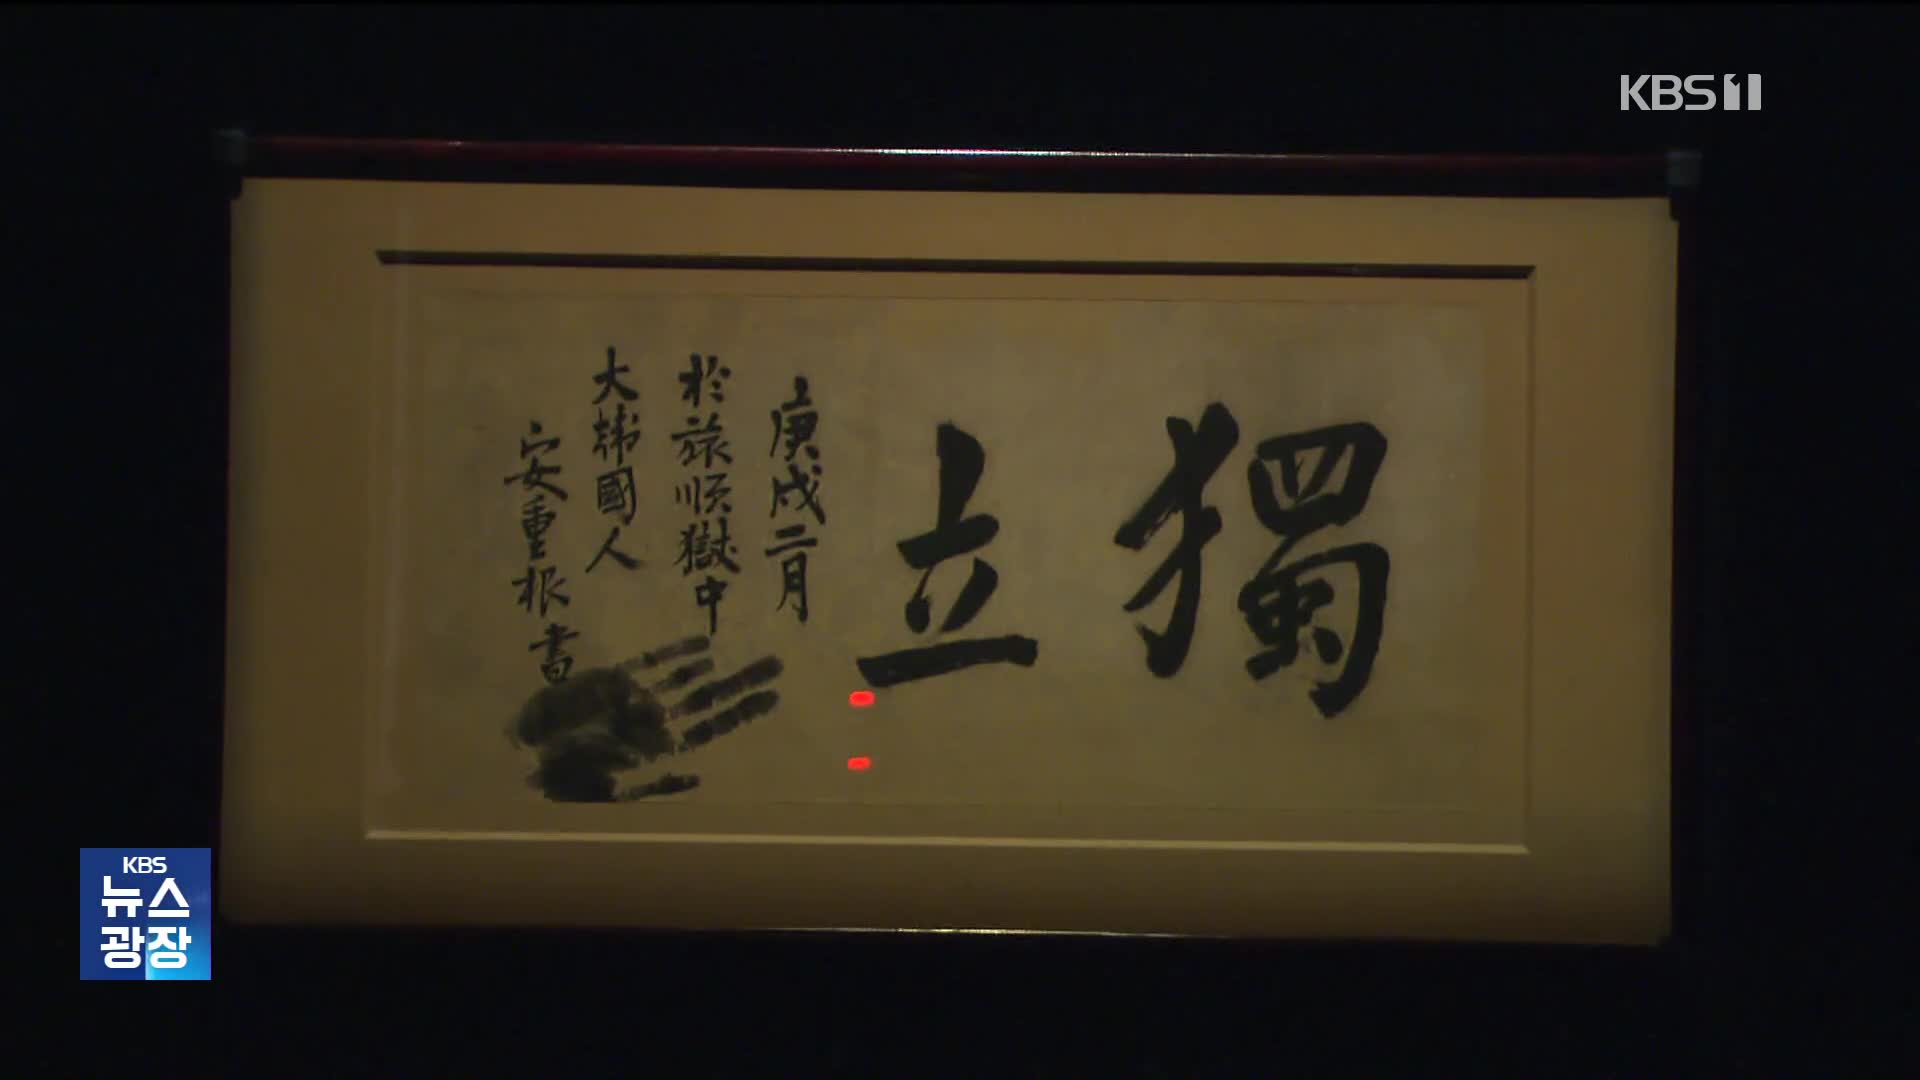 KBS 1
獨立
庚戌二月
於旅順獄中
大韓國人
安重根書
KBS
뉴스
광장